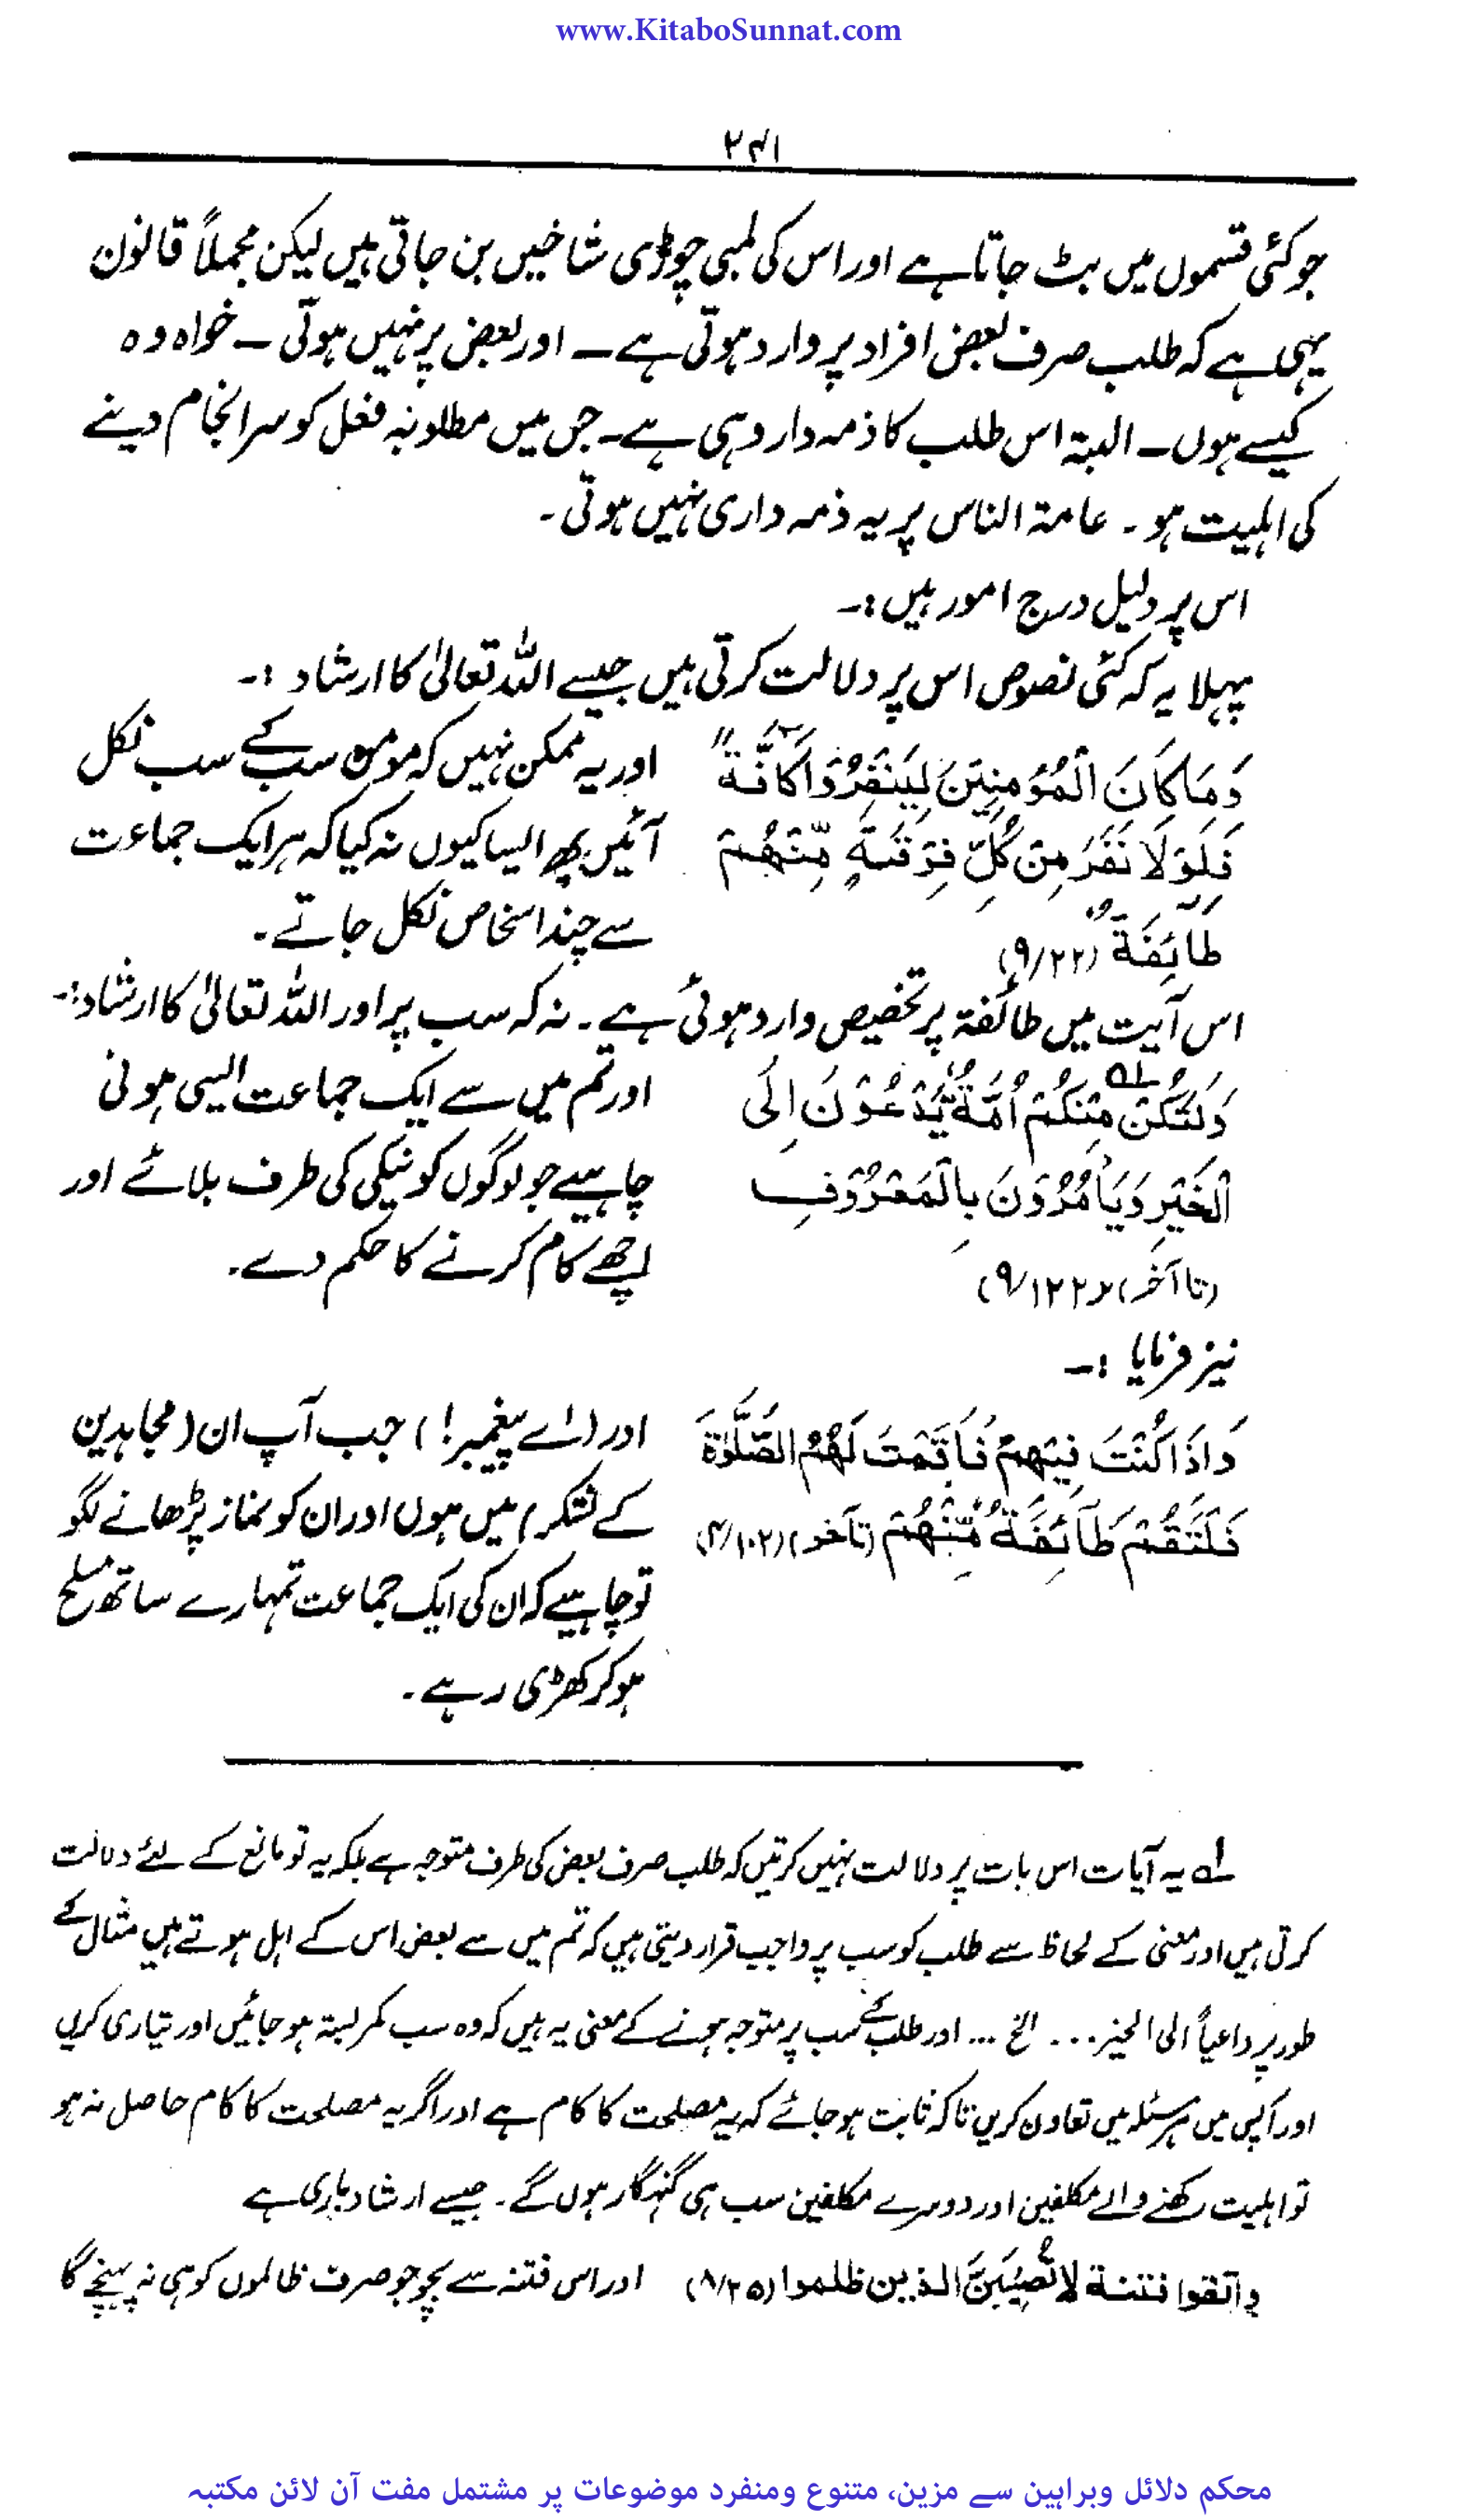 www.KitaboSunnat.com
۲۴۱
جو کئی قسموں میں بٹ جاتا ہے اور اس کی لمبی چوڑی شاخیں بن جاتی ہیں لیکن مجملاً قانون
یہی ہے کہ طلب صرف بعض افراد پر وارد ہوتی ہے ــ اور بعض پر نہیں ہوتی ــ خواہ وہ
کیسے ہوں ــ البتہ اس طلب کا ذمہ دار وہی ہے ـ جس میں مطلوبہ فعل کو سرانجام دینے
کی اہلیت ہو ۔ عامۃ الناس پر یہ ذمہ داری نہیں ہوتی ۔
اس پر دلیل درج امور ہیں :ـ
پہلا یہ کہ کئی نصوص اس پر دلالت کرتی ہیں جیسے اللہ تعالیٰ کا ارشاد :ـ
وَمَا كَانَ الْمُؤْمِنِيْنَ لِيَنْفِرُوْا كَآفَّةً اور یہ ممکن نہیں کہ مومن سب کے سب نکل
فَلَوْلَا نَفَرَ مِنْ كُلِّ فِرْقَةٍ مِّنْهُمْ آئیں پھر ایسا کیوں نہ کیا کہ ہر ایک جماعت
طَآئِفَةٌ (۹/۲۲) سے چند اشخاص نکل جاتے ۔
اس آیت میں طائفۃ پر تخصیص وارد ہوئی ہے ۔ نہ کہ سب پر اور اللہ تعالیٰ کا ارشاد :ـ
وَلْتَكُنْ لہ مِّنْكُمْ اُمَّةٌ يَّدْعُوْنَ اِلَى اور تم میں سے ایک جماعت ایسی ہونی
الْخَيْرِ وَيَأْمُرُوْنَ بِالْمَعْرُوْفِ چاہیے جو لوگوں کو نیکی کی طرف بلائے اور
(تا آخر) (۹/۱۲۲ اچھے کام کرنے کا حکم دے ۔
نیز فرمایا :ــ
وَاِذَا كُنْتَ فِيْهِمْ فَاَقَمْتَ لَهُمُ الصَّلٰوةَ اور (اے پیغمبر!) جب آپ ان (مجاہدین
فَلْتَقُمْ طَآئِفَةٌ مِّنْهُمْ (تا آخر) (۴/۱۰۲) کے لشکر) میں ہوں اور ان کو نماز پڑھانے لگو
تو چاہیے کہ ان کی ایک جماعت تمہارے ساتھ مسلح
ہو کر کھڑی رہے ۔
لہ یہ آیات اس بات پر دلالت نہیں کرتیں کہ طلب صرف بعض کی طرف متوجہ ہے بلکہ یہ تو مانع کے لئے دلالت
کرتی ہیں اور معنی کے لحاظ سے طلب کو سب پر واجب قرار دیتی ہیں کہ تم میں سے بعض اس کے اہل ہوتے ہیں مثال کے
طور پر داعیاً الی الخیر ... الخ ... اور طلب کے سب پر متوجہ ہونے کے معنی یہ ہیں کہ وہ سب کمربستہ ہو جائیں اور تیاری کریں
اور آپس میں ہر مسئلہ میں تعاون کریں تاکہ ثابت ہو جائے کہ یہ مصلحت کا کام ہے اور اگر یہ مصلحت کا کام حاصل نہ ہو
تو اہلیت رکھنے والے مکلفین اور دوسرے مکلفین سب ہی گنہگار ہوں گے ۔ جیسے ارشاد باری ہے
واتقوا فتنة لا تُصِيْبَنَّ الذين ظلموا (۸/۲۵) اور اس فتنہ سے بچو جو صرف ظالموں کو ہی نہ پہنچے گا
محکم دلائل وبراہین سے مزین، متنوع ومنفرد موضوعات پر مشتمل مفت آن لائن مکتبہ